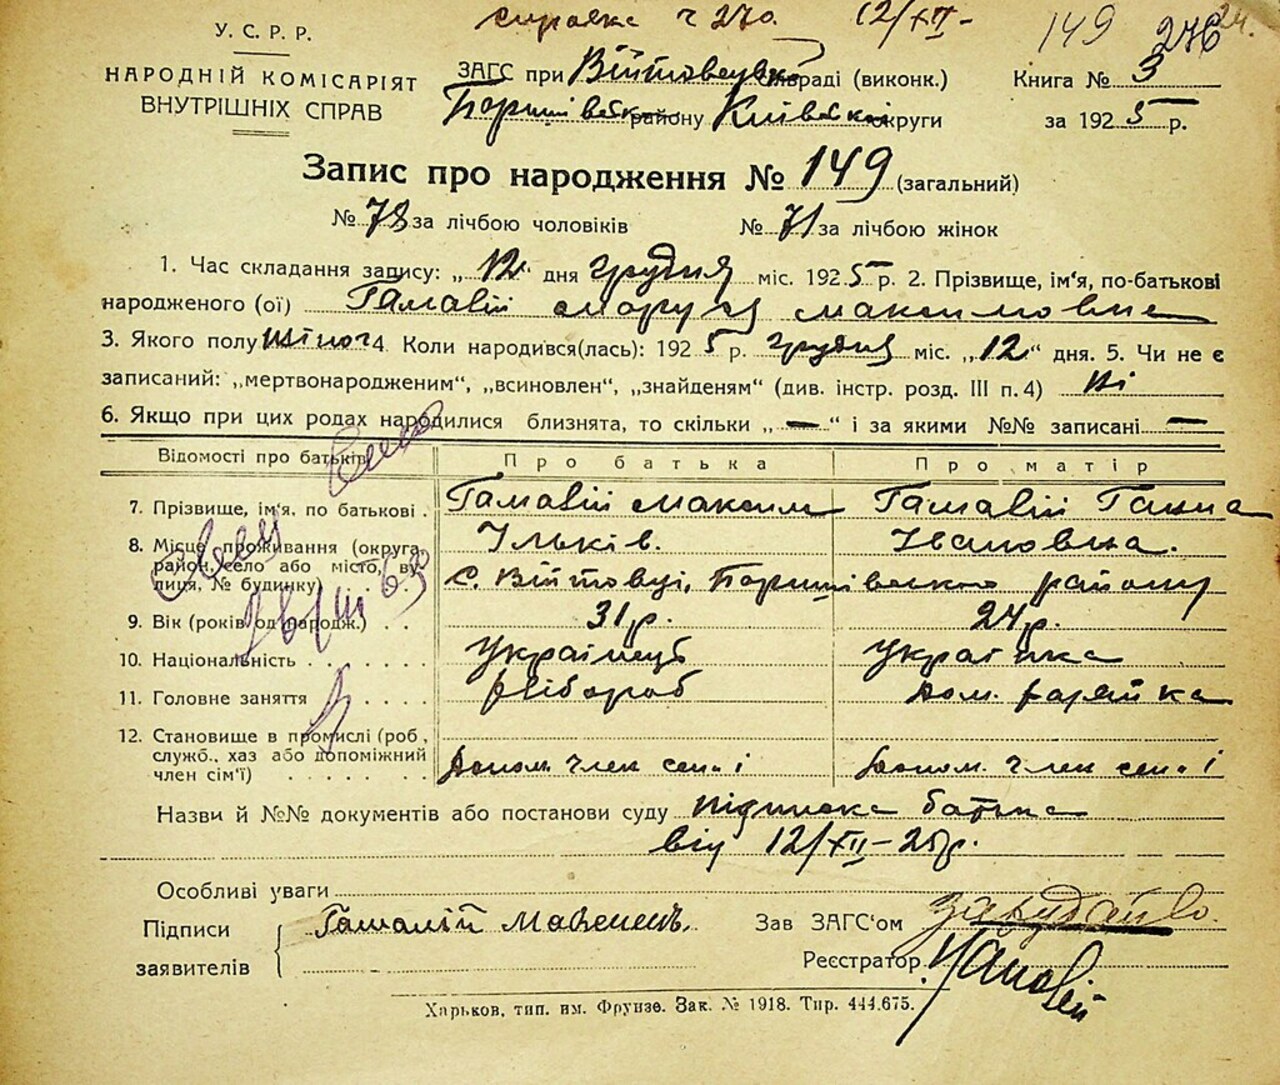 справка ч 270. 12/XII-
149 276 24.
У. С. Р. Р.
НАРОДНІЙ КОМІСАРІЯТ
ВНУТРІШНІХ СПРАВ
ЗАГС при Війтовецькі сільраді (виконк.)
Борщівськ району Київської округи
Книга № 3
за 1925 р.
Запис про народження № 149 (загальний)
№ 78 за лічбою чоловіків № 71 за лічбою жінок
1. Час складання запису: „12“ дня грудня міс. 1925 р. 2. Прізвище, ім‘я, по-батькові
народженого (ої) Гамалій Маруся Максимовна
3. Якого полу жіноч 4. Коли народився(лась): 1925 р. грудня міс. „12“ дня. 5. Чи не є
записаний: „мертвонародженим“, „всиновлен“, „знайденям“ (див. інстр. розд. III п. 4) Ні
6. Якщо при цих родах народилися близнята, то скільки „—“ і за якими №№ записані —
Відомості про батьків Про батька Про матір
7. Прізвище, ім‘я, по батькові . Гамалій Максим Гамалій Ганна
Ільків. Івановна.
8. Місце проживання (округа
район, село або місто, ву-
лиця, № будинку) с. Війтовці, Борщівського району
9. Вік (років од народж.) . . 31 р. 24 р.
10. Національність . . . . . . . Українець Українка
11. Головне заняття . . . . Хлібороб Дом. господарка
12. Становище в промислі (роб.,
служб., хаз або допоміжний
член сім‘ї) . . . . . . Допом. член сем‘ї Допом. член сем‘ї
Назви й №№ документів або постанови суду підписка батька
від 12/XII-25 р.
Особливі уваги
Підписи
заявителів
Гамалій Максим
Зав ЗАГС‘ом
Реєстратор
Харьков, тип. им. Фрунзе. Зак. № 1918. Тир. 444.675.